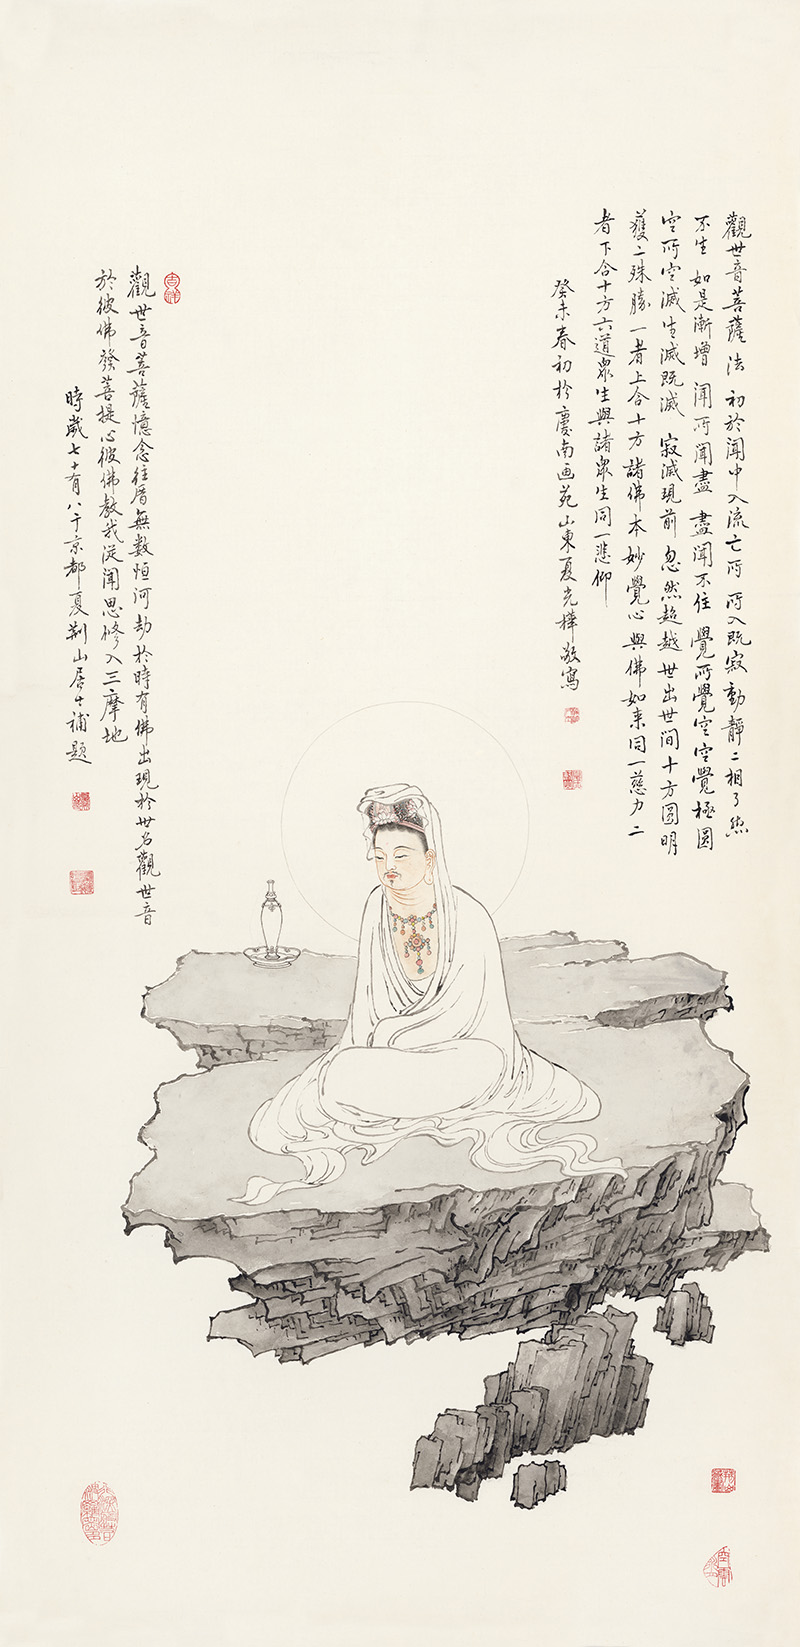 觀世音菩薩法 初於聞中入流亡所 所入既寂動靜二相了然
不生 如是漸增 聞所聞盡 盡聞不住 覺所覺空空覺極圓
空所空滅生滅既滅 寂滅現前 忽然超越世出世间十方圓明
獲二殊勝 一者上合十方諸佛本妙覺心與佛如来同一慈力二
者下合十方六道眾生與諸眾生同一悲仰
癸未春初於慶南画苑山東夏光樺敬寫
吉祥
觀世音菩薩憶念往昔無数恒河劫於時有佛出現於世名觀世音
於彼佛發菩提心彼佛教我從聞思修入三摩地
時歲七十有八于京都夏荆山居士補題